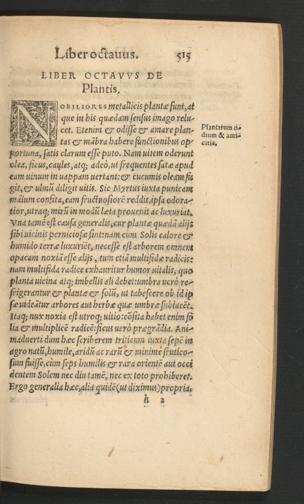 Liber octauus. 515
LIBER OCTAVVS DE
Plantis.
NOBILIORES metallicis plantæ sunt, at
que in his quædam sensus imago relu-
cet. Etenim & odisse & amare plan-
tas & mēbra habere functionibus op-
portuna, satis clarum esse puto. Nam uitem oderunt
olea, ficus, caules, atq; adeò, ut frequentes satæ apud
eam uinum in uappam uertant: & cucumis oleam fu-
git, & ulmū diligit uitis. Sic Myrtus iuxta punicam
malum consita, eam fructuosiorē reddit, ipsa odora-
tior, utraq; mirū in modū læta prouenit ac luxuriat.
Vna tamē est causa generalis, cur plantæ quædā alijs
sibi uicinis perniciosæ sint: nam cum Solis calore &
humido terræ luxuriēt, necesse est arborem omnem
opacam noxiā esse alijs, tum etiā multifidæ radicis:
nam multifida radice exhauritur humor uitalis, quo
planta uicina atq; imbellis ali debet: umbra uerò re-
frigerantur & plantæ & solū, ut tabescere ob id ip
sæ uideātur arbores aut herbæ quæ umbræ subiacēt.
Itaq; nux noxia est utroq; uitio: cōsita habet enim fo
lia & multiplicē radicē: ficus uerò prægrādia. Ani-
maduerti dum hæc scriberem triticum iuxta sepē in
agro natū, humile, aridū ac rarū & minime frutico-
sum fuisse, cùm seps humilis & rara orientē aut occi
dentem Solem nec diu tamē, nec ex toto prohiberet.
Ergo generalia hæc, alia quidē (ut diximus) propria,
Plantarum o-
dium & ami-
citia.
k 2